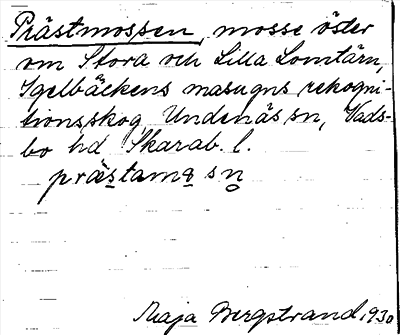 Prästmossen, mosse öster
om Stora och Lilla Lomtärn,
Igelbäckens masugns rekogni-
tionsskog Undenäs sn, Vads-
bo hd Skarab. l.
præstamɷ sn̥
Maja Bergstrand, 1930